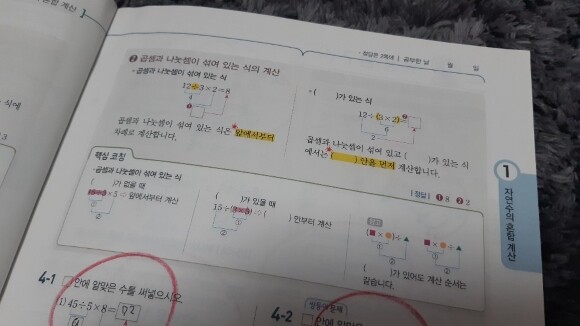 합 계산
· 정답은 2쪽에 | 공부한 날 월 일
❷ 곱셈과 나눗셈이 섞여 있는 식의 계산
· 곱셈과 나눗셈이 섞여 있는 식
12÷3×2=8
4
❶
곱셈과 나눗셈이 섞여 있는 식은 앞에서부터
차례로 계산합니다.
· ( )가 있는 식
12÷(3×2)=
6
2
곱셈과 나눗셈이 섞여 있고 ( )가 있는 식
에서는 ( ) 안을 먼저 계산합니다.
| 정답 | ❶ 8 ❷ 2
핵심 코칭
· 곱셈과 나눗셈이 섞여 있는 식
( )가 없을 때
×5 ⇨ 앞에서부터 계산
①
②
( )가 있을 때
15÷( ) ⇨ ( ) 안부터 계산
①
②
참고
(■×●)÷▲ ■×●÷▲
① ①
② ②
( )가 있어도 계산 순서는
같습니다.
1
자연수의 혼합 계산
4-1 □ 안에 알맞은 수를 써넣으시오.
(1) 45÷5×8=72
9
4-2 □ 안에 알맞은
식에
3